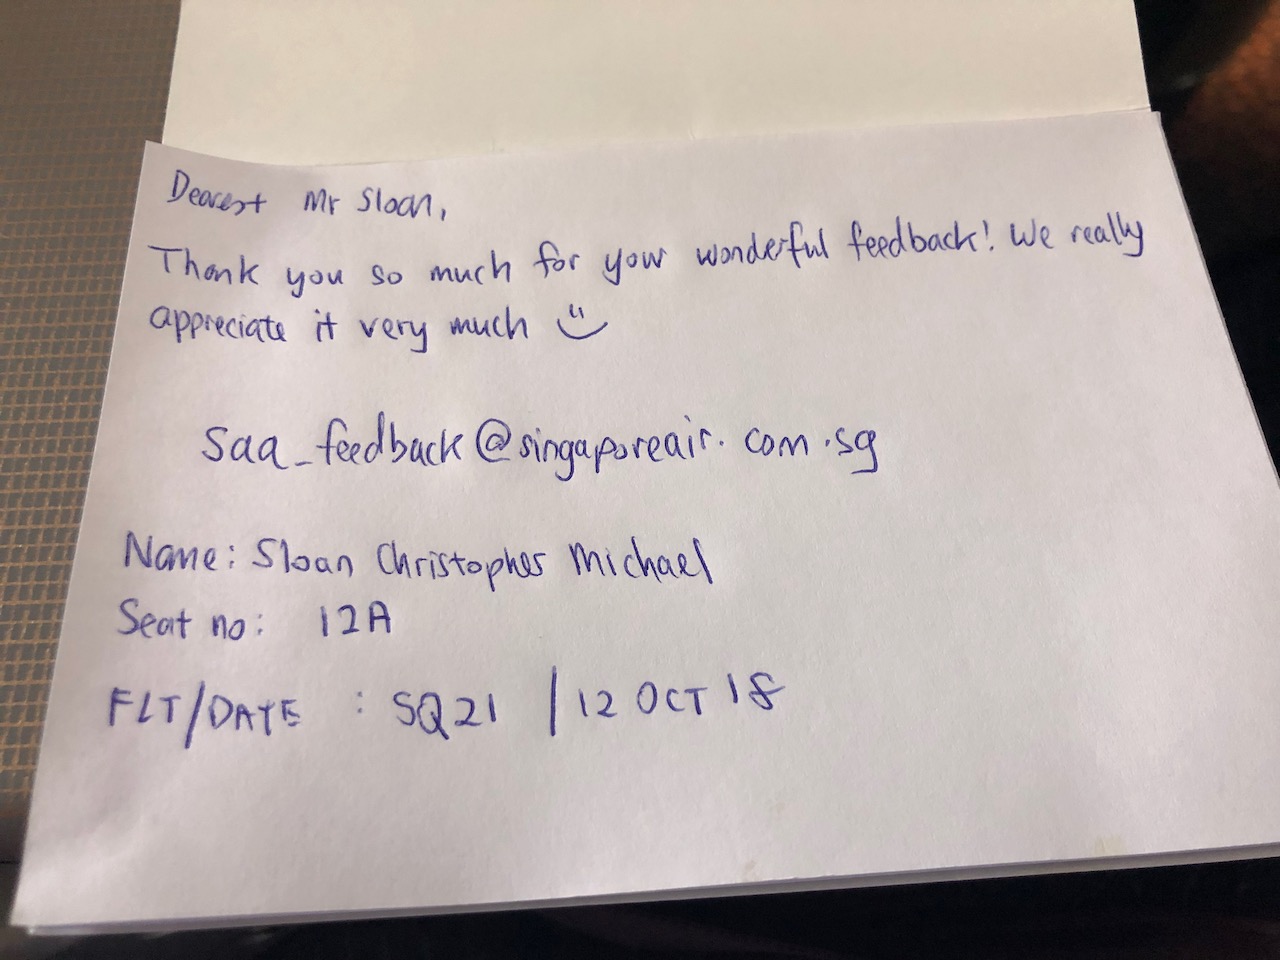 Dearest Mr Sloan,
Thank you so much for your wonderful feedback! We really
appreciate it very much
saa_feedback@singaporeair.com.sg
Name: Sloan Christopher Michael
Seat no: 12A
FLT/DATE : SQ21 /12 OCT 18